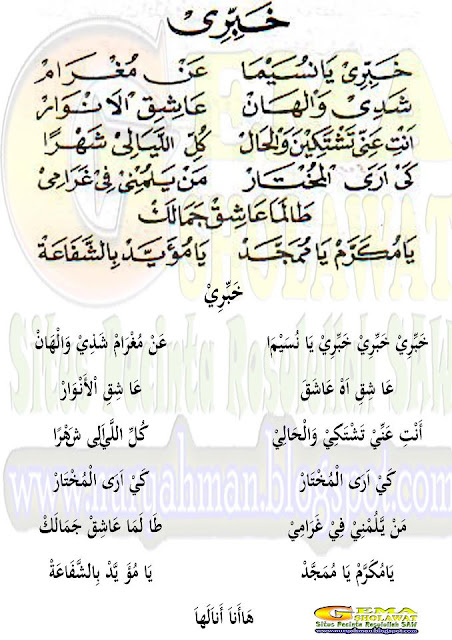 خَبِّرِىْ
خَبِّرِىْ يَانُسَيْمَا عَنْ مُغْرَامْ
شَذِىْ وَالْهَانْ عَاشِقِ اْلاَنْوَارْ
اَنْتِ عَنِّىْ تَشْتَكِيْنَ وَالْحَالْ كُلِّ اللَّيَالِىْ شَهْرًا
كَىْ اَرَى الْمُخْتَارْ مَنْ يَلُمْنِىْ فِىْ غَرَامِىْ
طَالَمَا عَاشِقْ جَمَالَكْ
يَامُكَرَّمْ يَا مُمَجَّدْ يَا مُؤَيَّدْ بِالشَّفَاعَةْ
خَبِّرِيْ
خَبِّرِيْ خَبِّرِيْ خَبِّرِيْ يَا نُسَيْمَا عَنْ مُغْرَامْ شَذِيْ وَالْهَانْ
عَا شِقِ اَهْ عَاشَقَ عَا شِقِ اْلأَنْوَارْ
أَنْتِ عَنِّيْ تَشْتَكِيْ وَالْحَالِيْ كُلِّ اللَّيَالِى شَهْرًا
كَيْ اَرَى الْمُخْتَارْ كَيْ اَرَى الْمُخْتَارْ
مَنْ يَّلُمْنِيْ فِيْ غَرَامِيْ طَا لَمَا عَاشِقْ جَمَالَكْ
يَامُكَرَّمْ يَا مُمَجَّدْ يَا مُؤَ يَّدْ بِالشَّفَاعَةْ
هَاأَناَ اَنَالَهاَ
GEMA SHOLAWAT
Situs Pecinta Rosulollah SAW
www.nuryahman.blogspot.com